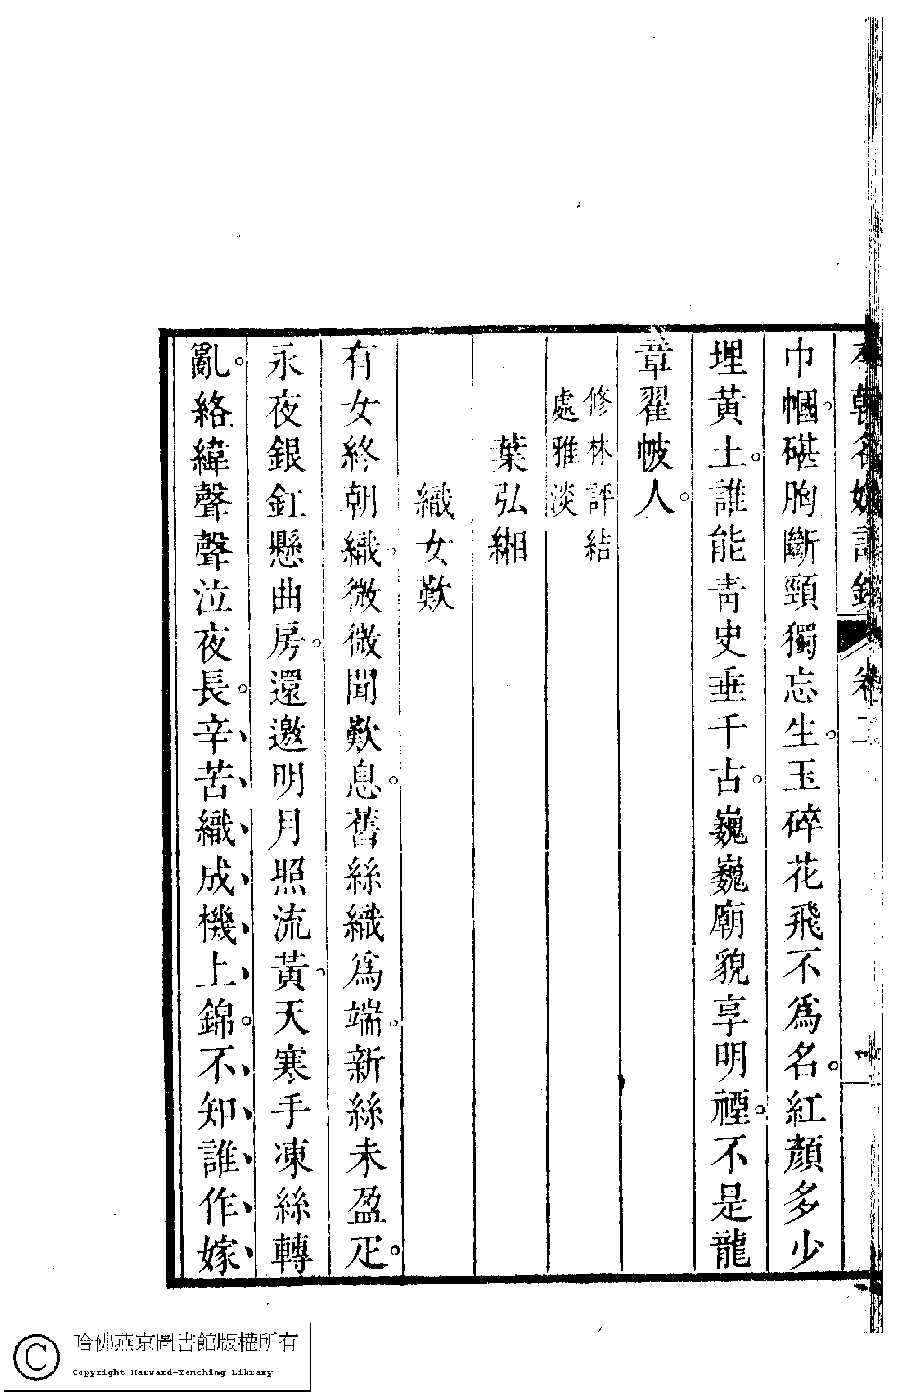 本朝名媛詩鈔 卷二
巾幗碪胸斷頸獨忘生玉碎花飛不爲名紅顏多少
埋黃土誰能靑史垂千古巍巍廟貌享明禋不是龍
章翟帔人
修林評結
處雅淡
葉弘緗
織女歎
有女終朝織微微聞歎息舊絲織爲端新絲未盈疋
永夜銀釭懸曲房還邀明月照流黃天寒手凍絲轉
亂絡緯聲聲泣夜長辛苦織成機上錦不知誰作嫁
哈佛燕京圖書館版權所有
Copyright Harvard-Yenching Library